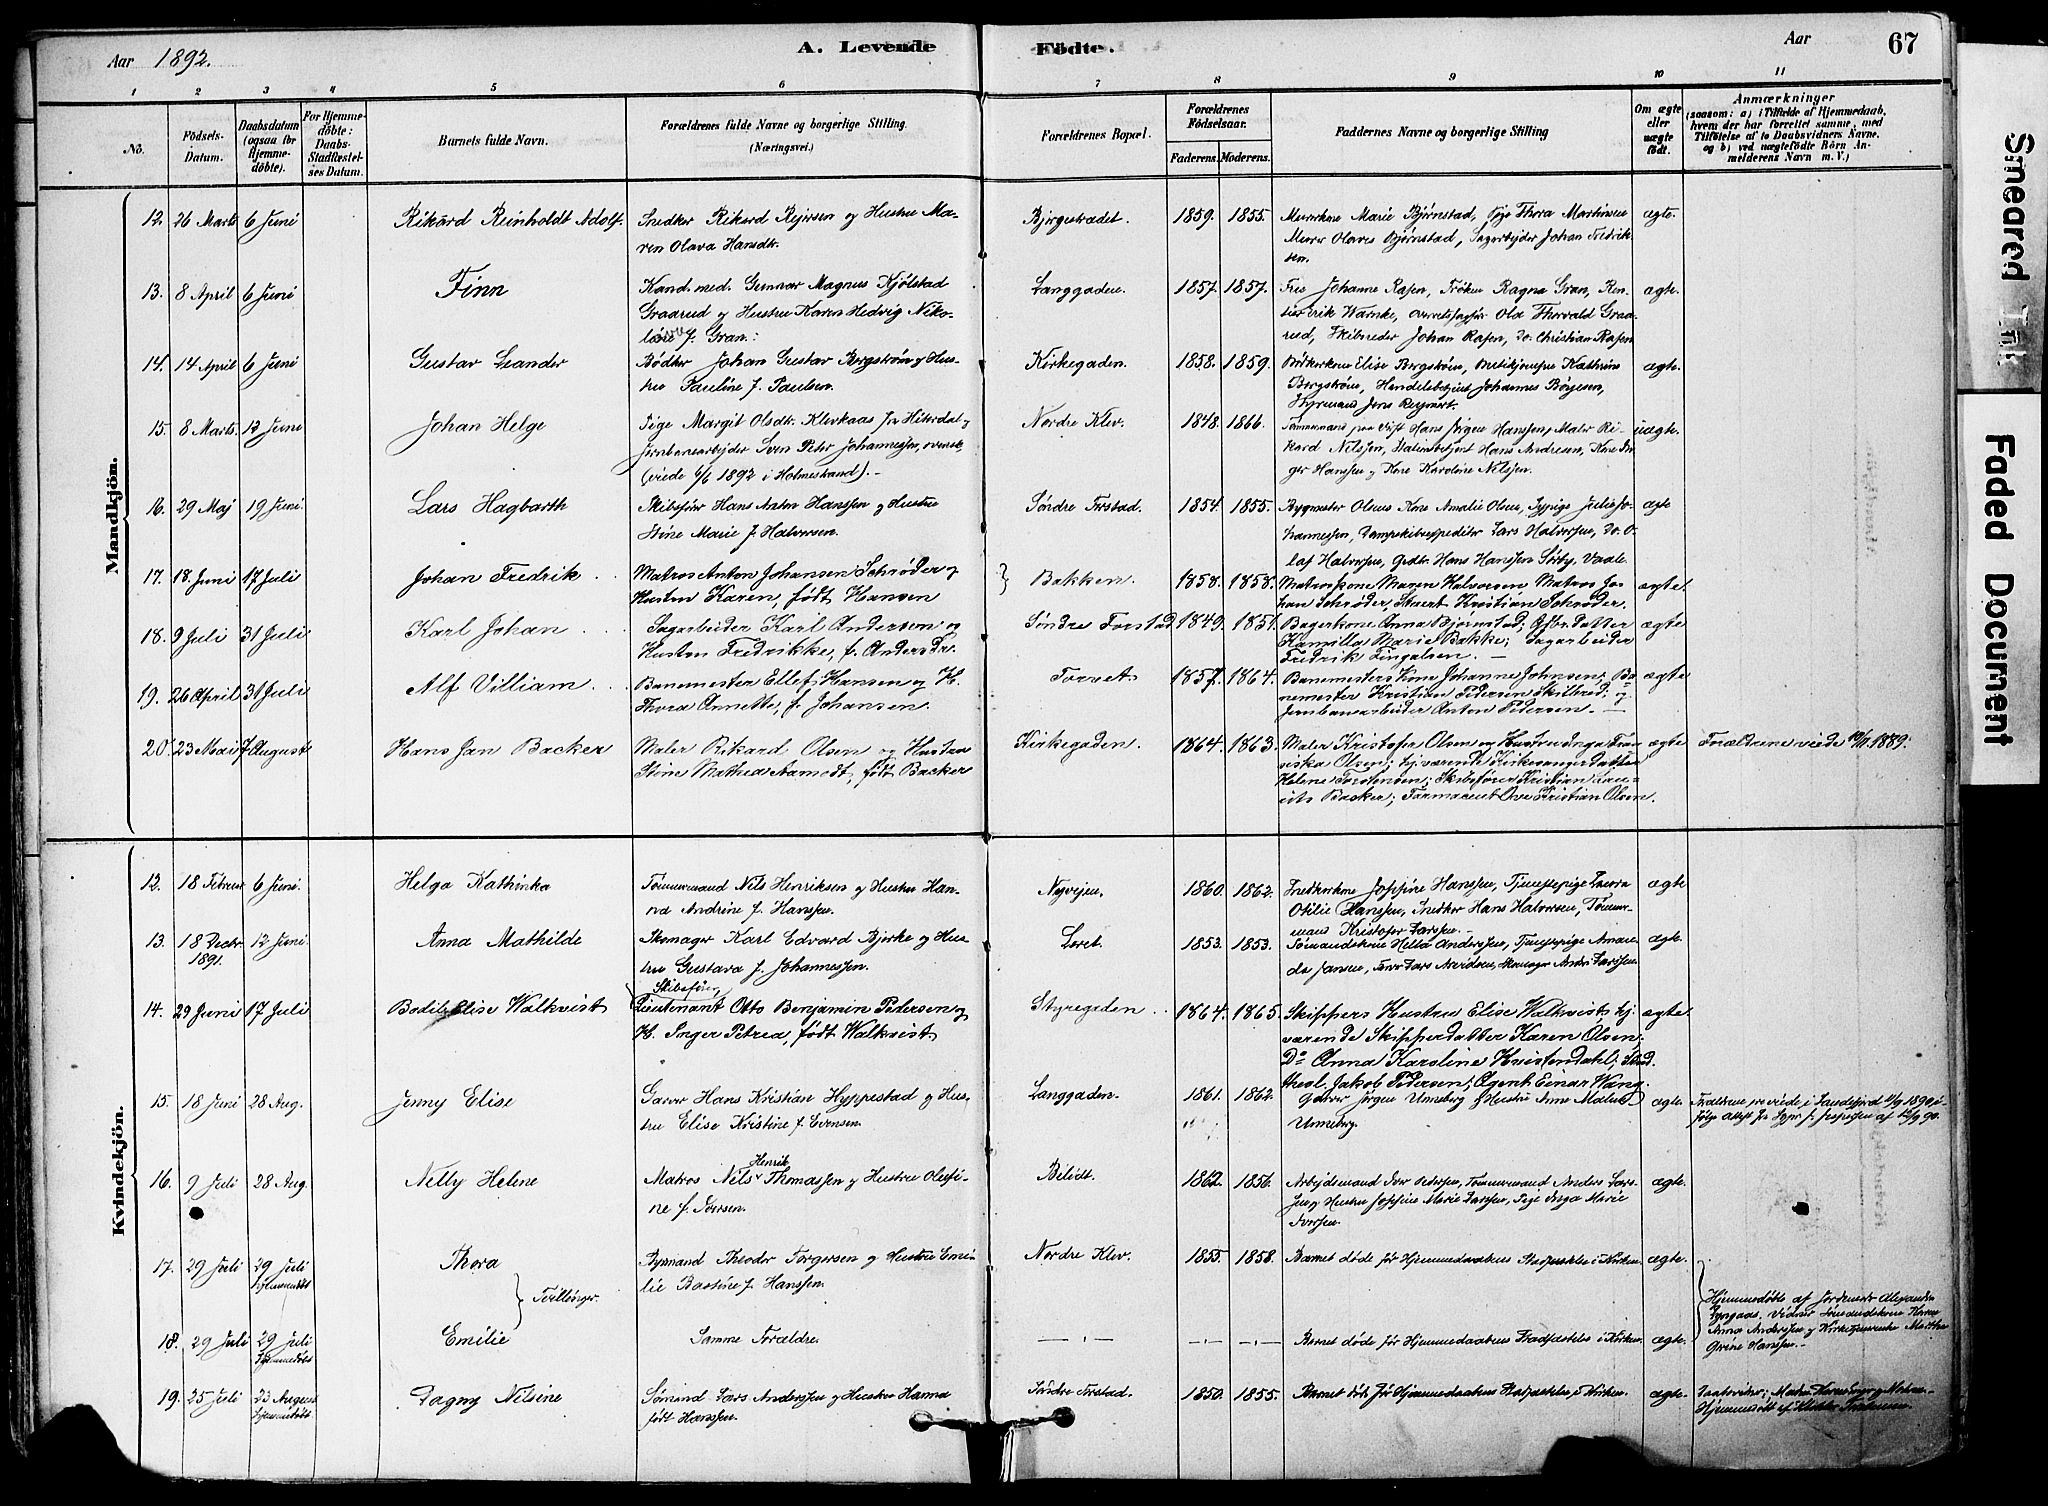 Aar 1892.
A. Levende
Födte.
Aar
67
1 2 3 4 5 6 7 8 9 10 11
No.
Födsels-Datum.
Daabsdatum (ogsaa for Hjemme-döbte).
For Hjemme-döbte: Daabs-Stadfæstel-ses Datum.
Barnets fulde Navn.
Forældrenes fulde Navne og borgerlige Stilling. (Næringsvei.)
Forældrenes Bopæl.
Forældrenes Födselsaar.
Faderens. Moderens.
Faddernes Navne og borgerlige Stilling
Om ægte eller uægte födt.
Anmærkninger
(saasom: a) i Tilfælde af Hjemmedaab,
hvem der har forrettet samme, med
Tilföielse af to Daabsvidners Navne.
og b) ved uægtefödte Börn An-
melderens Navn m. V.)
Mandkjön.
12. 26 Marts 6 Juni Rikard Reinholdt Adolf. Snedker Rikard Reiersen og Hustru Ma-
ren Olava Hansdtr.
Bjergestrædet. 1859. 1855. Murerkone Marie Bjørnstad, Pige Thora Martinsen
Murer Olaves Bjørnstad, Sagarbejder Johan Fredrik-
sen.
ægte.
13. 8 April 6 Juni Finn Kand. med. Gunnar Magnus Kjølstad
Graarud og Hustru Karen Hedvig Niko-
f. Gran.
Langgaden. 1857. 1857. Frue Johanne Rasen, Frøken Ragna Gran, Ren-
tier Erik Warnke, Ola Thorvald Graa-
rud, Skibsreder Johan Rasen, Do. Christian Rasen
ægte.
14. 14 April 6 Juni Gustav Leander Bødker Johan Gustav Bergstrøm og Hus-
tru Pauline f. Paulsen.
Kirkegaden. 1858. 1859. Bødkerkone Elise Bergstrøm, Butikjomfru Kathrine
Bergstrøm, Handelsbetjent Johannes Børjesen,
Styrmand Jens Reymert.
ægte.
15. 8 Marts. 12 Juni Johan Helge Pige Margit Olsdtr. Klevkaas fra Hiterdal og
Jernbanearbejder Sven Peter Johannessen, svensk,
(viede 6/6 1892 i Holmestrand).
Nordre Klev. 1848. 1866. Tømmermand paa Værft Hans Jørgen Hanssen, Maler Ri-
kard Nilssen, Stationsbetjent Hans Andresen, Kone
Hanssen og Kone Karoline Nilsen.
uægte.
16. 29 Maj 19 Juni. Lars Hagbarth Skibsfører Hans Anton Hanssen og Hustru
Stine Marie f. Halvorsen.
Søndre Forstad. 1854. 1855. Bygmester Olsens Kone Amalie Olsen, Sypige Julie Jo-
hannessen, Dampskibsexpeditør Lars Halvorsen, do. O-
laf Halvorsen, Hans Hanssen Sørby, Vaale.
ægte
17. 18. Juni 17 Juli Johan Fredrik Matros Anton Johansen Schrøder og
Hustru Karen, født Hansen
Bakken. 1858. 1858. Matroskone Maren Halvorsen Matros Jo-
han Schrøder, Kristian Schrøder.
ægte.
18. 9 Juli 31 Juli Karl Johan Sagarbeider Karl Andersen og
Hustru Fredrikke, f. Andersdtr.
Søndre Forstad 1849. 1851. Bagerkone Anna Bjørnstad; Datter
Kamilla Marie Bakke; Sagarbeider
Fredrik Fingalsen.
ægte
19. 26 April 31 Juli Alf Villiam Banemester Ellef Hansen og H.
Thora Annette, f. Johansen.
Torvet 1857. 1864. Banemesters Kone Johanne Johnsen; Ba-
nemester Kristian Pedersen Skilbred; og
Jernbanearbeider Anton Pedersen.
ægte
20. 23 Mai 7 August Hans Jan Backer Maler Rikard Olsen og Hustru
Stine Mathea Aamodt, født Backer
Kirkegaden. 1864. 1863. Maler Kristofer Olsen og Hustru Inga Fran-
siska Olsen; hj.værende Kirkesanger Datter
Helene Torstensen; Skibsfører Kristian Lau-
rits Backer; Farmaceut Ove Kristian Olsen.
ægte
Forældrene viede 10/11 1889.
Kvindekjön.
12. 18 Februar 6 Juni. Helga Kathinka Tømmermand Nils Henriksen og Hustru Han-
na Andrine f. Hanssen.
Nyvejen. 1860. 1862. Snedkerkone Josefine Hanssen, Tjenestepige Laura
Otilie Hanssen, Snedker Hans Halvorsen, Tømmer-
mand Kristofer Larssen.
ægte
13. 18 Decbr. 1891. 12 Juni. Anna Mathilde Skomager Karl Edvard Bjerke og Hus-
tru Gustava f. Johannessen.
Leret. 1853. 1853. Sømandskone Helła Anderssen, Tjenestepige Aman-
da Jansen, Lars Arvidsen, Skomager Andr. Larssen.
ægte.
14. 29 Juni 17 Juli Bodil Elise Walkvist Skibsfører
Lieutenant Otto Benjamin Pedersen og
H. Inger Petrea, født Walkvist
Styregaden 1864. 1865. Skippers Hustru Elise Walkvist, hj.
værende Skipperdatter Karen Olsen;
Do Anna Karoline Kristendahl; Stud.
theol. Jakob Pedersen; Agent Einar Wang.
ægte.
15. 18 Juni 28 Aug. Jenny Elise Garver Hans Kristian Hyppestad og Hus-
tru Elise Kristine f. Evensen.
Langgaden. 1861. 1862. Garver Jørgen Unneberg & Hustru Anne Malene
Unneberg.
ægte.
Forældrene viede i Sandefjord 1890 i-
følge Attest fra
16. 9 Juli 28 Aug. Nelly Helene Matros Nils Henrik Thomassen og Hustru Olefi-
ne f. Iversen.
Belidt. 1862. 1856. Arbejdsmand Iver Pedersen, Tømmermand Anders Lars-
sen og Hustru Josefine Marie Larssen, Pige Inga Marie
Iversen.
ægte.
17. 29 Juli 29 Juli Hjemmedøbt Thora
Theodor Torgersen og Hustru Emi-
lie Bastine f. Hanssen.
Nordre Klev. 1855. 1858. Barnet døde før Hjemmedaabens Stadfæstelse i Kirken.
ægte.
Tvillinger.
Hjemmedøbte af Jordemoder Alexandra
Vidner Sømandskone Karen
Anna Anderssen og Martha
Hanssen.
18. 29 Juli 29 Juli Hjemmedøbt Emilie Samme Forældre. Barnet døde før Hjemmedaabens Stadfæstelse i Kirken. ægte.
19. 25 Juli 23 August Hjemmedøbt Dagny Nilsine Sømand Lars Anderssen og Hustru Hanna
født Hanssen.
Søndre Forstad. 1850. 1855. Barnet døde før Hjemmedaabens Stadfæstelse i Kirken. ægte.
Hjemmedøbt af
Smeared Ink
Faded Document